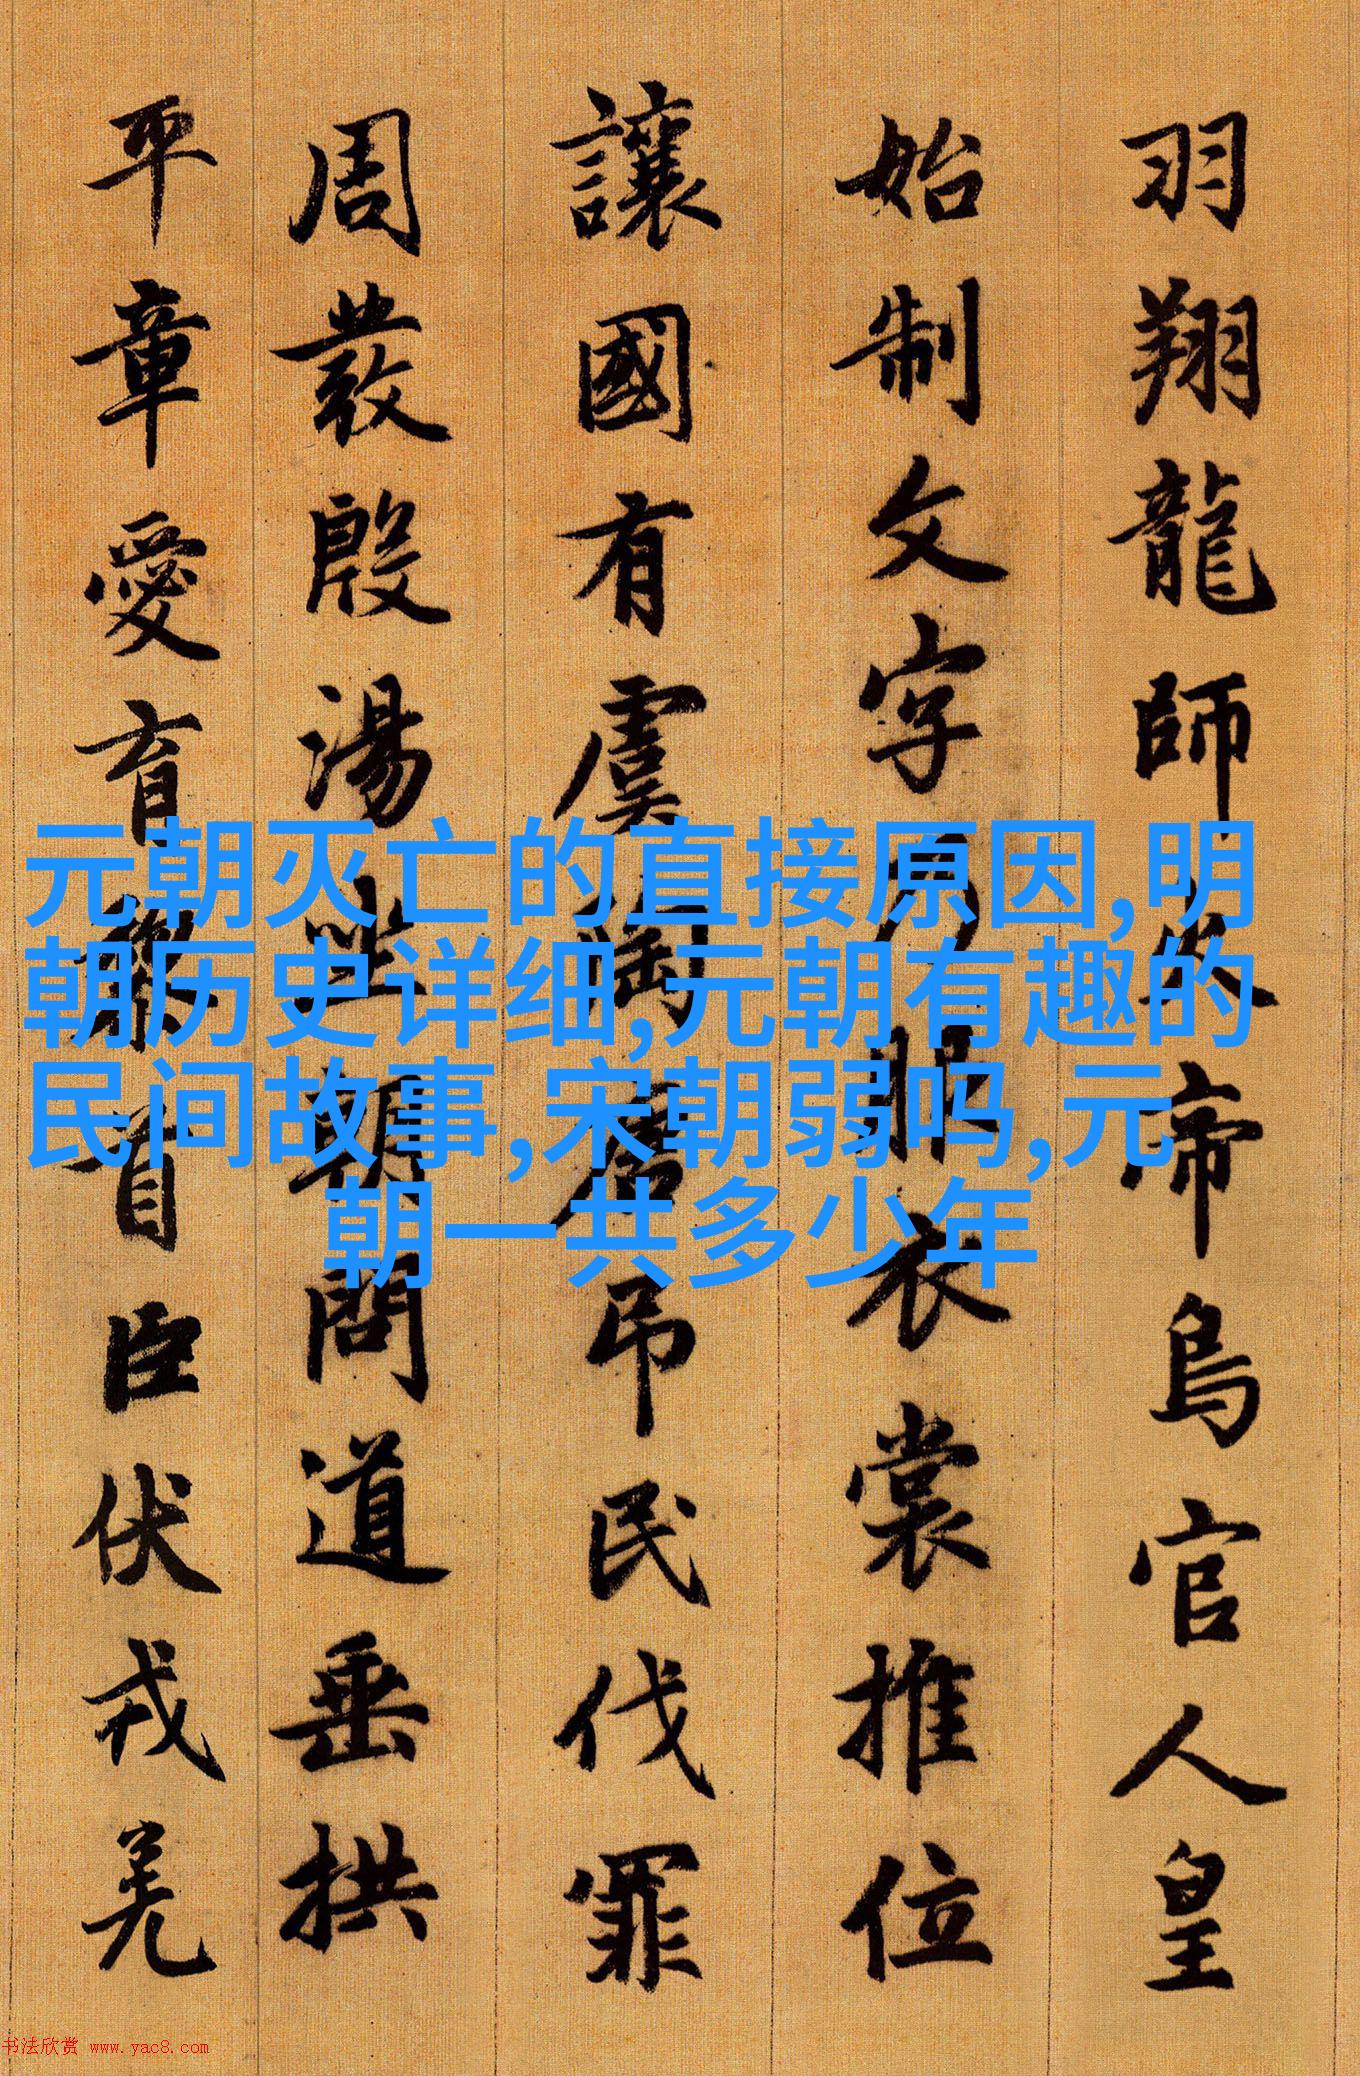 羽翔龍師火帝鳥官人皇
始制文字乃服衣裳推位
讓國有虞陶唐吊民伐罪
周發殷湯坐朝問道垂拱
平章愛育黎首臣伏戎羌
元朝灭亡的直接原因,明
朝历史详细,元朝有趣的
民间故事,宋朝弱吗,元
朝一共多少年
书法欣赏 www.yac8.com